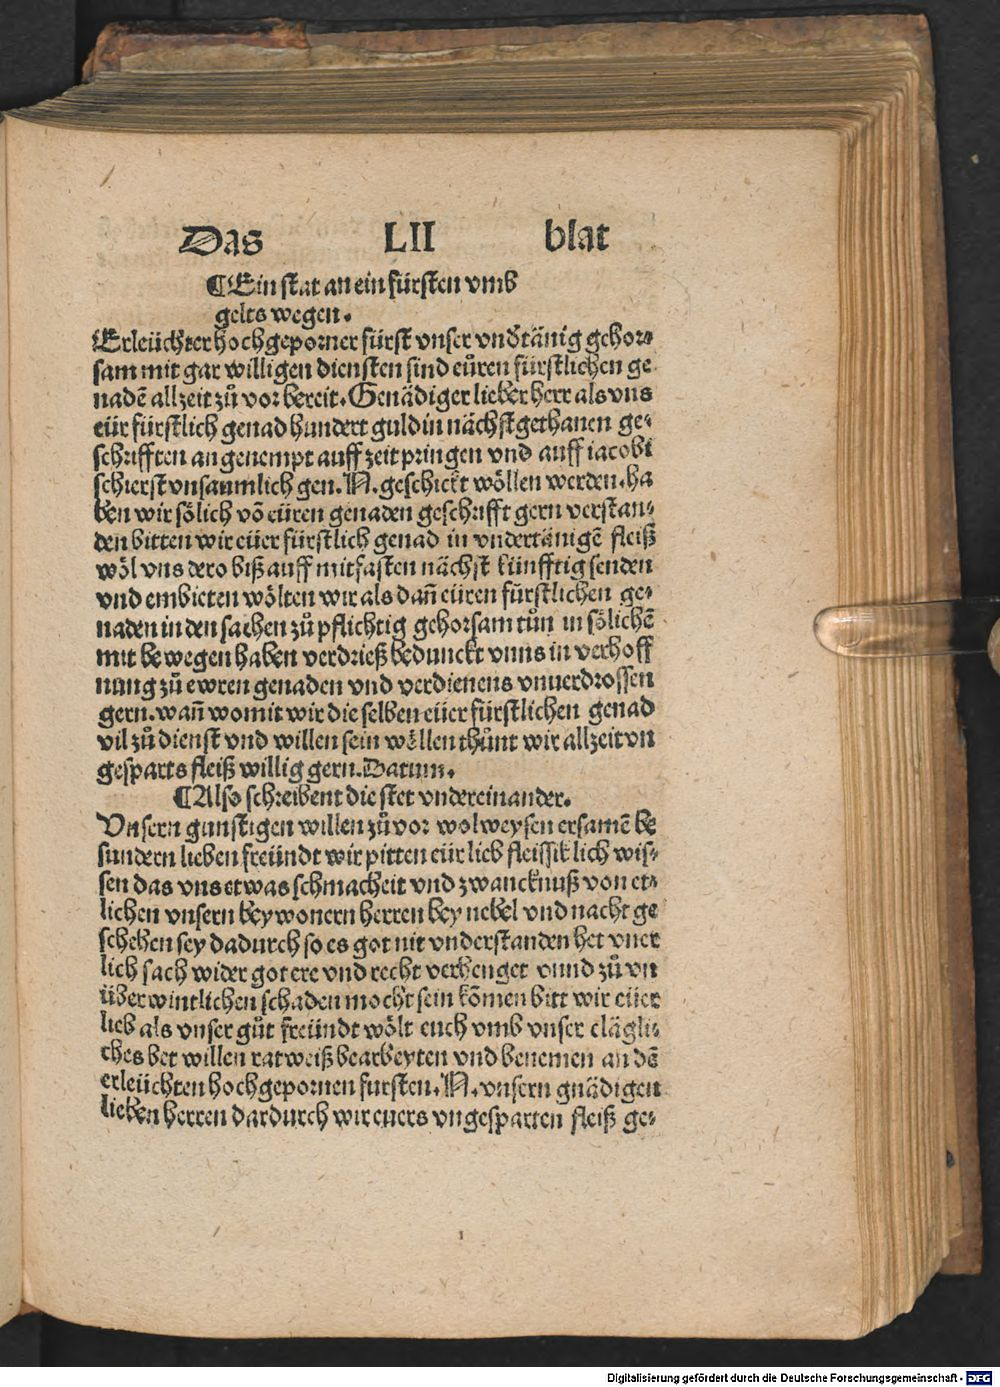 Das LII blat
¶Ein stat an ein fürsten vmb
gelts wegen.
Erleüchter hochgeporner fürst vnser vndtänig gehor⸗
sam mit gar willigen diensten sind eüren fürstlichen ge
nadē allzeit zů vor bereit. Genädiger lieber herr als vns
eür fürstlich genad hundert guldin nächstgethanen ge⸗
schrifften angenempt auff zeit pringen vnd auff iacobi
schierst vnsaumlich gen. N. geschickt wöllen werden. ha
ben wir sölich vō eüren genaden geschrifft gern verstan⸗
den bitten wir eüer fürstlich genad in vndertänigē fleiß
wöl vns dero biß auff mitfasten nächst künfftig senden
vnd embieten wölten wir als dañ eüren fürstlichen ge⸗
naden in den sachen zů pflichtig gehorsam tůn in sölichē
mit bewegen haben verdrieß bedunckt vnns in verhoff
nung zů ewren genaden vnd verdienens vnuerdrossen
gern. wañ womit wir die selben eüer fürstlichen genad
vil zů dienst vnd willen sein wöllen thůnt wir allzeit vn
gesparts fleiß willig gern. Datum.
¶Also schreibent die stet vndereinander.
Vnsern gunstigen willen zůvor wolweysen ersamē be
sundern lieben freündt wir pitten eür lieb fleissiklich wis⸗
sen das vns etwas schmacheit vnd zwancknuß von et⸗
lichen vnsern beywonern herren bey nebel vnd nacht ge
schehen sey dadurch so es got nit vnderstanden het vner
lich sach wider got ere vnd recht verhenget vnnd zů vn
überwintlichen schaden mocht sein kōmen bitt wir eüer
lieb als vnser gůt freündt wölt euch vmb vnser clägli⸗
ches bet willen ratweiß bearbeyten vnd benemen an dē
erleüchten hochgepornen fursten. N. vnsern gnädigen
lieben herren dardurch wir euers vngesparten fleiß ge⸗
Digitalisierung gefördert durch die Deutsche Forschungsgemeinschaft - DFG